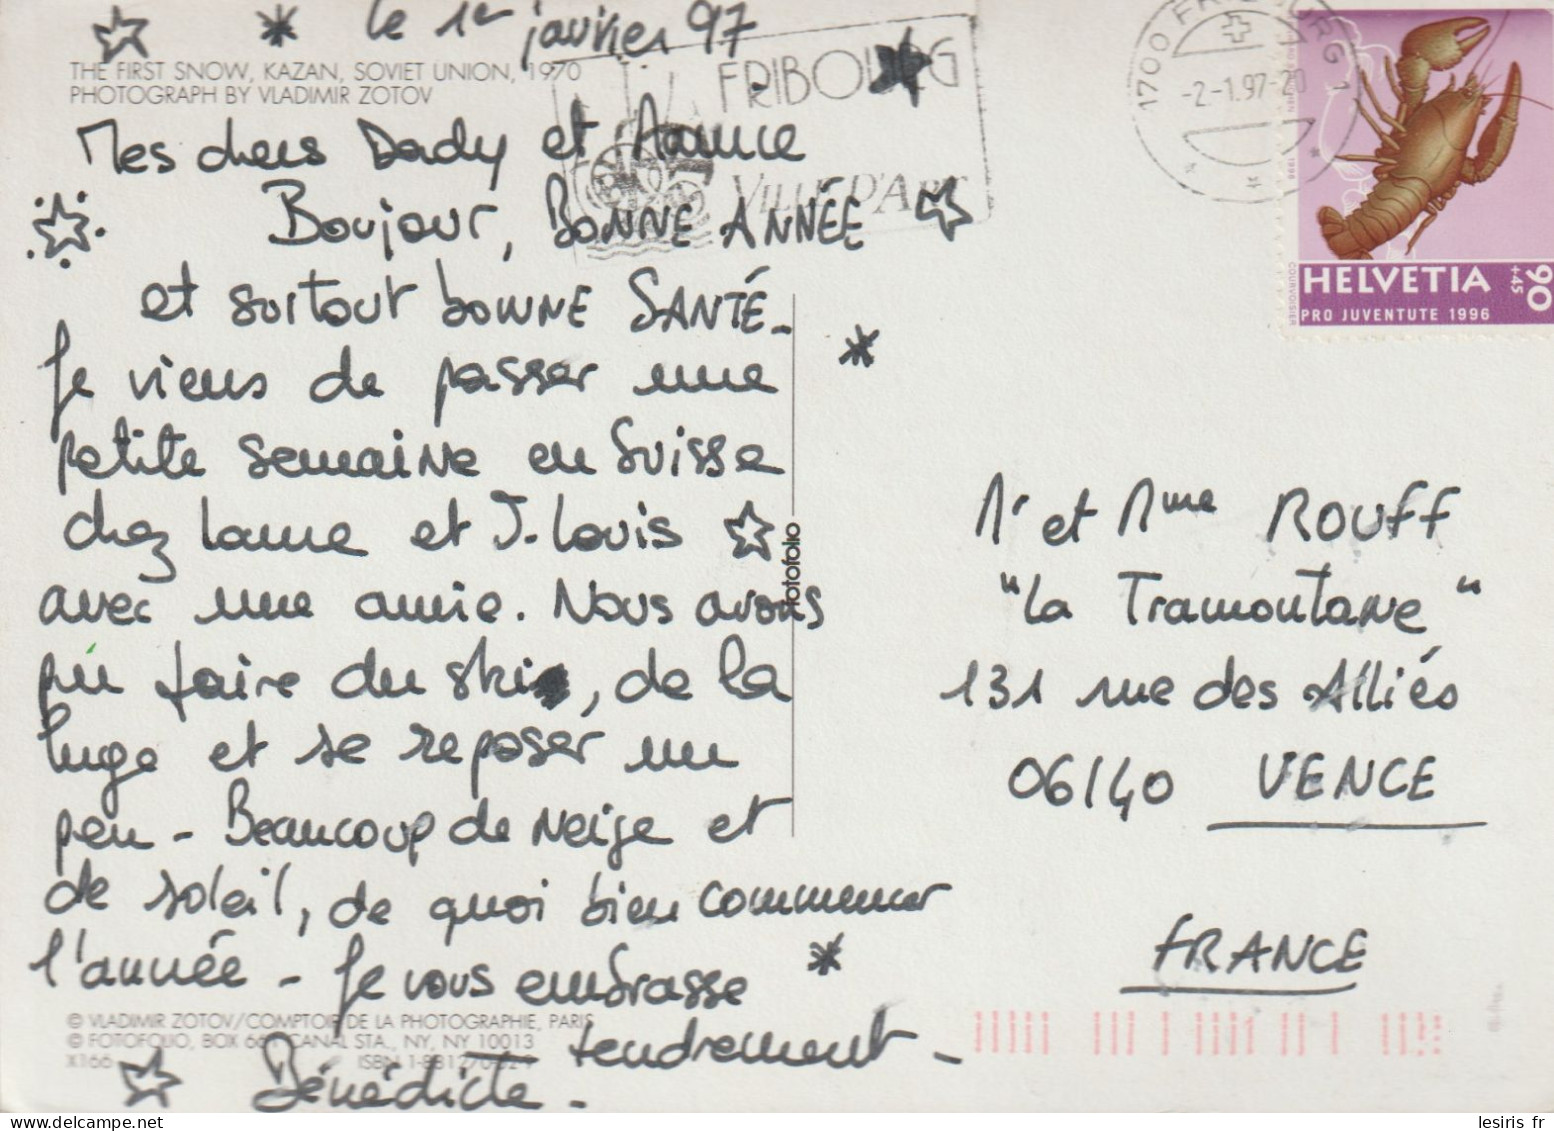 le 1er janvier 97
THE FIRST SNOW, KAZAN, SOVIET UNION, 1970
PHOTOGRAPH BY VLADIMIR ZOTOV
Mes chers Dady et
Boujour, BONNE ANNÉE
et surtout bonne SANTÉ_
Je viens de passer une
petite semaine en Suisse
chez et J. Louis
avec une amie. Nous avons
pu faire du ski, de la
luge et se reposer un
peu - Beaucoup de neige et
de soleil, de quoi bien commencer
l'année - Je vous embrasse
tendrement -
Bénédicte -
© VLADIMIR ZOTOV/COMPTOIR DE LA PHOTOGRAPHIE, PARIS
© FOTOFOLIO, BOX 661 CANAL STA., NY, NY 10013
X166
fotofolio
FRIBOURG
VILLE D'ART
1700 FRIBOURG 1
-2-1.97-20
HELVETIA
90
+45
PRO JUVENTUTE 1996
COURVOISIER
Mr et Mme ROUFF
"La Tramontane"
131 rue des Alliés
06140 VENCE
FRANCE
lesiris fr